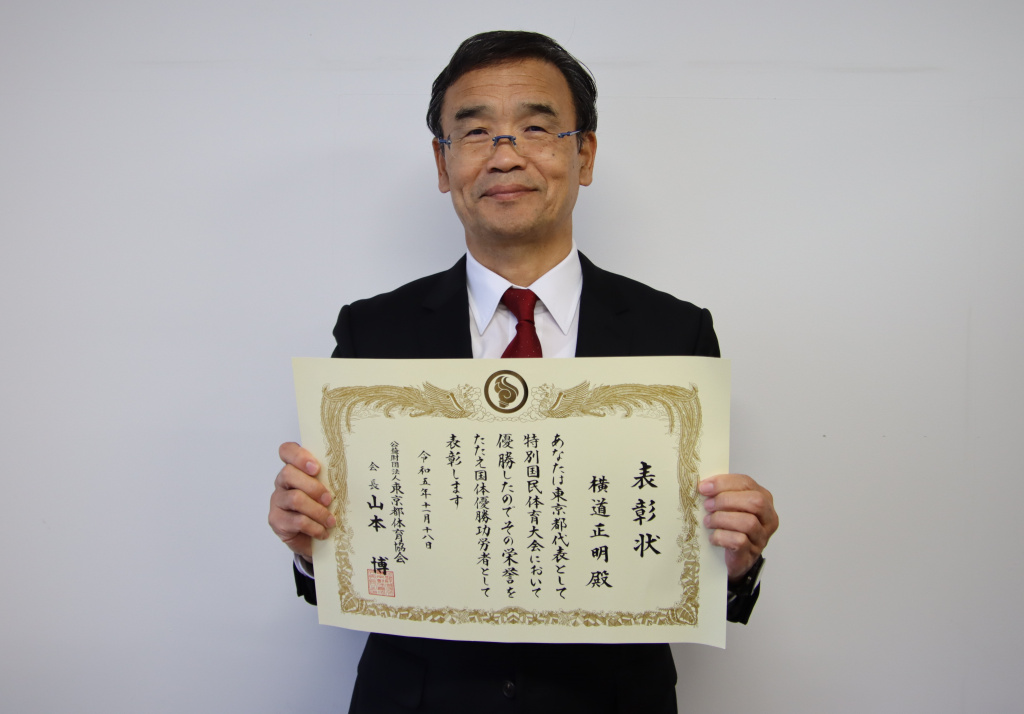 表彰状
横道正明殿
あなたは東京都代表として
特別国民体育大会において
優勝したのでその栄誉を
たたえ国体優勝功労者として
表彰します
令和五年十一月十八日
公益財団法人東京都体育協会
会長山本博